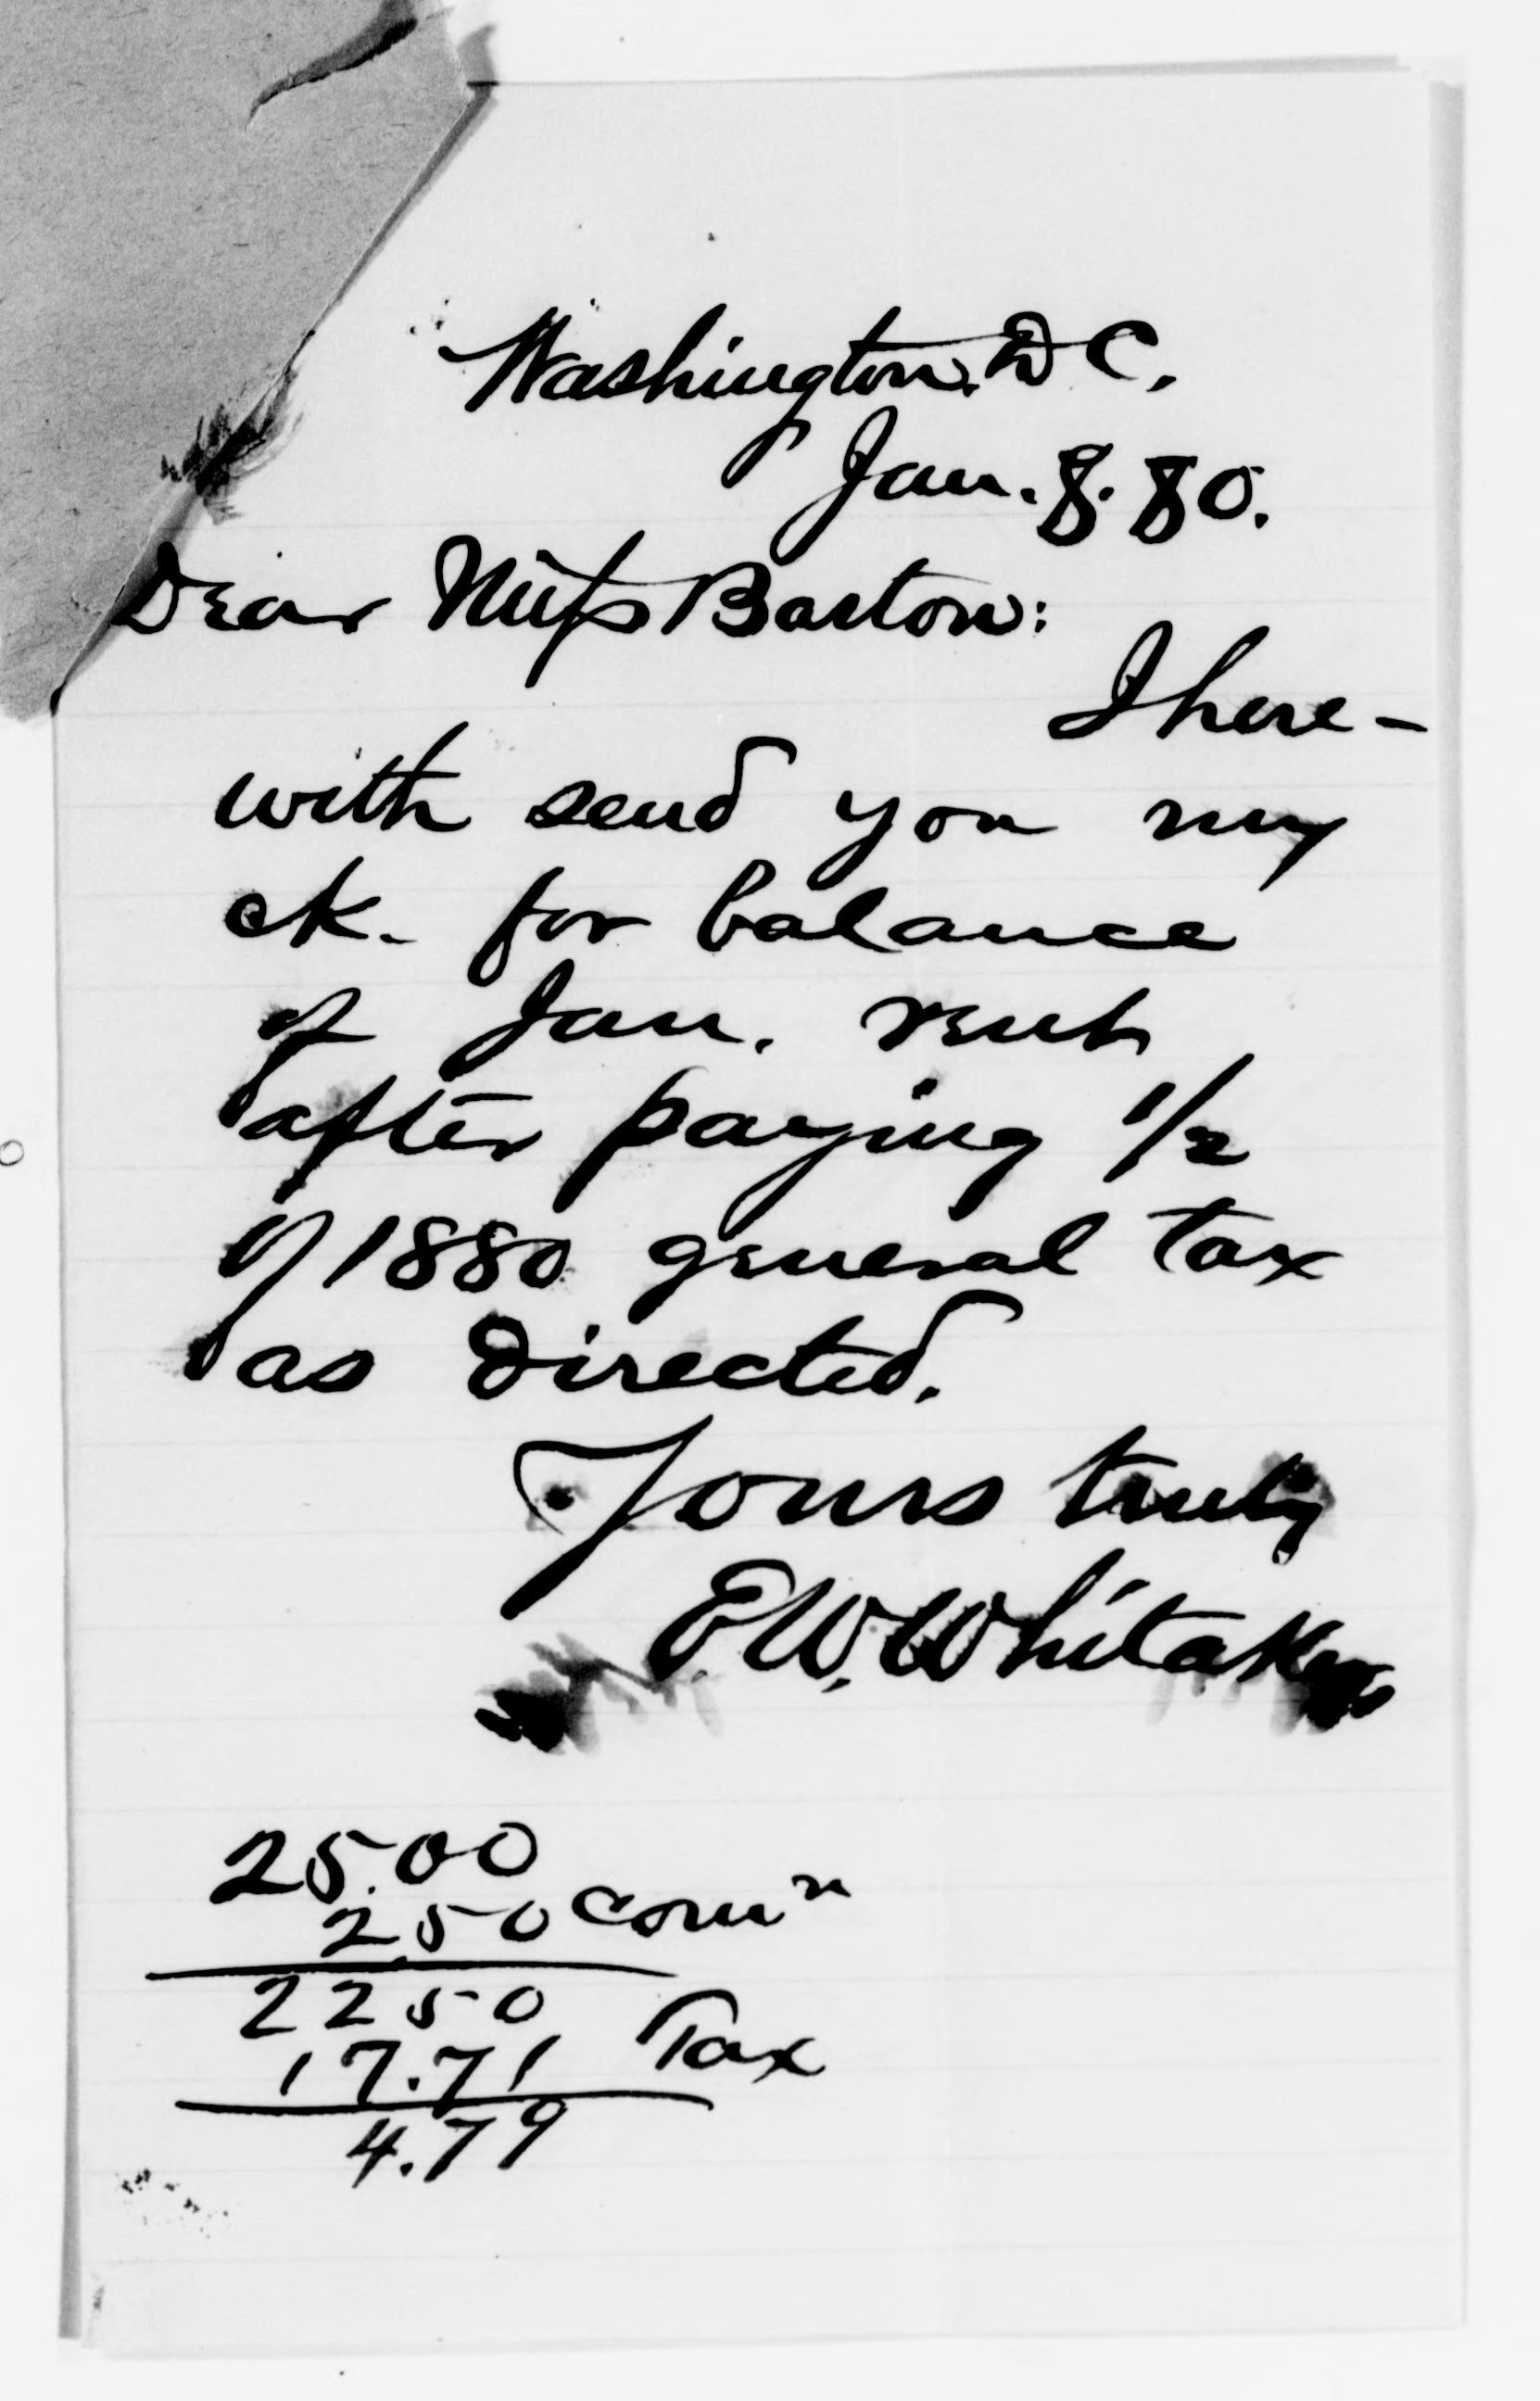 Washington. D C.
Jan. 8. 80.
Dear Miss Barton:
I here-
with send you my
ck. for balance
of Jan. rent
after paying 1/2
of 1880 general tax
as directed.
Yours truly
E. W. Whitaker
25.00
2.50 Comn
22 50
17.71 Tax
4.79